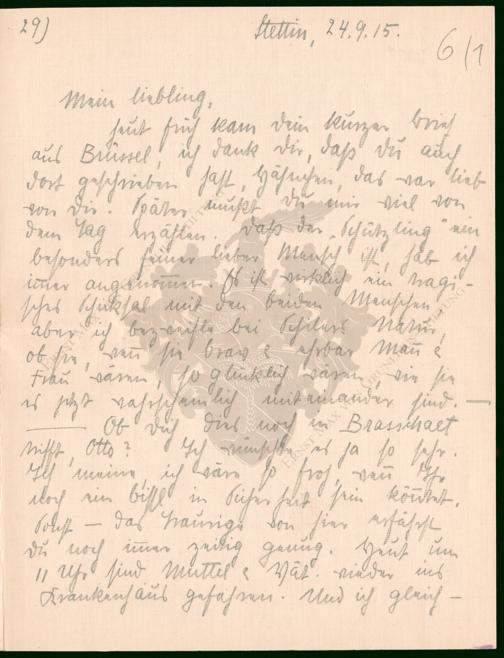 29)
Stettin, 24.9.15.
6/1
Mein Liebling,
heut früh kam Dein kurzer Brief
aus Brüssel, ich dank Dir, daß Du auch
dort geschrieben hast, Hänschen, das war lieb
von Dir. Später mußt Du mir viel von
dem Tag erzählen. Daß der „Schützling" ein
besonders feiner lieber Mensch ist, hab ich
im̅er angenom̅en. Es ist wirklich ein tragi-
sches Schicksal mit den beiden Menschen.
aber ich bezweifle bei Schilers Natur,
ob sie, wenn sie brav & ehrbar Man̅ &
Frau wären, so glücklich wären, wie sie
es jetzt wahrscheinlich miteinander sind. —
— Ob Dich dies noch in Brasschaet
trifft, Otto? Ich wünschte es ja so sehr.
Ich meine, ich wäre so froh, wen̅ Ihr
noch ein bissl in Sicherheit sein kön̅tet.
Sonst — das Traurige von hier erfährst
Du noch im̅er zeitig genug. Heut um
11 Uhr sind Muttel & Vät. wieder ins
Krankenhaus gefahren. Und ich gleich —
ERNST MAX VON GRUN